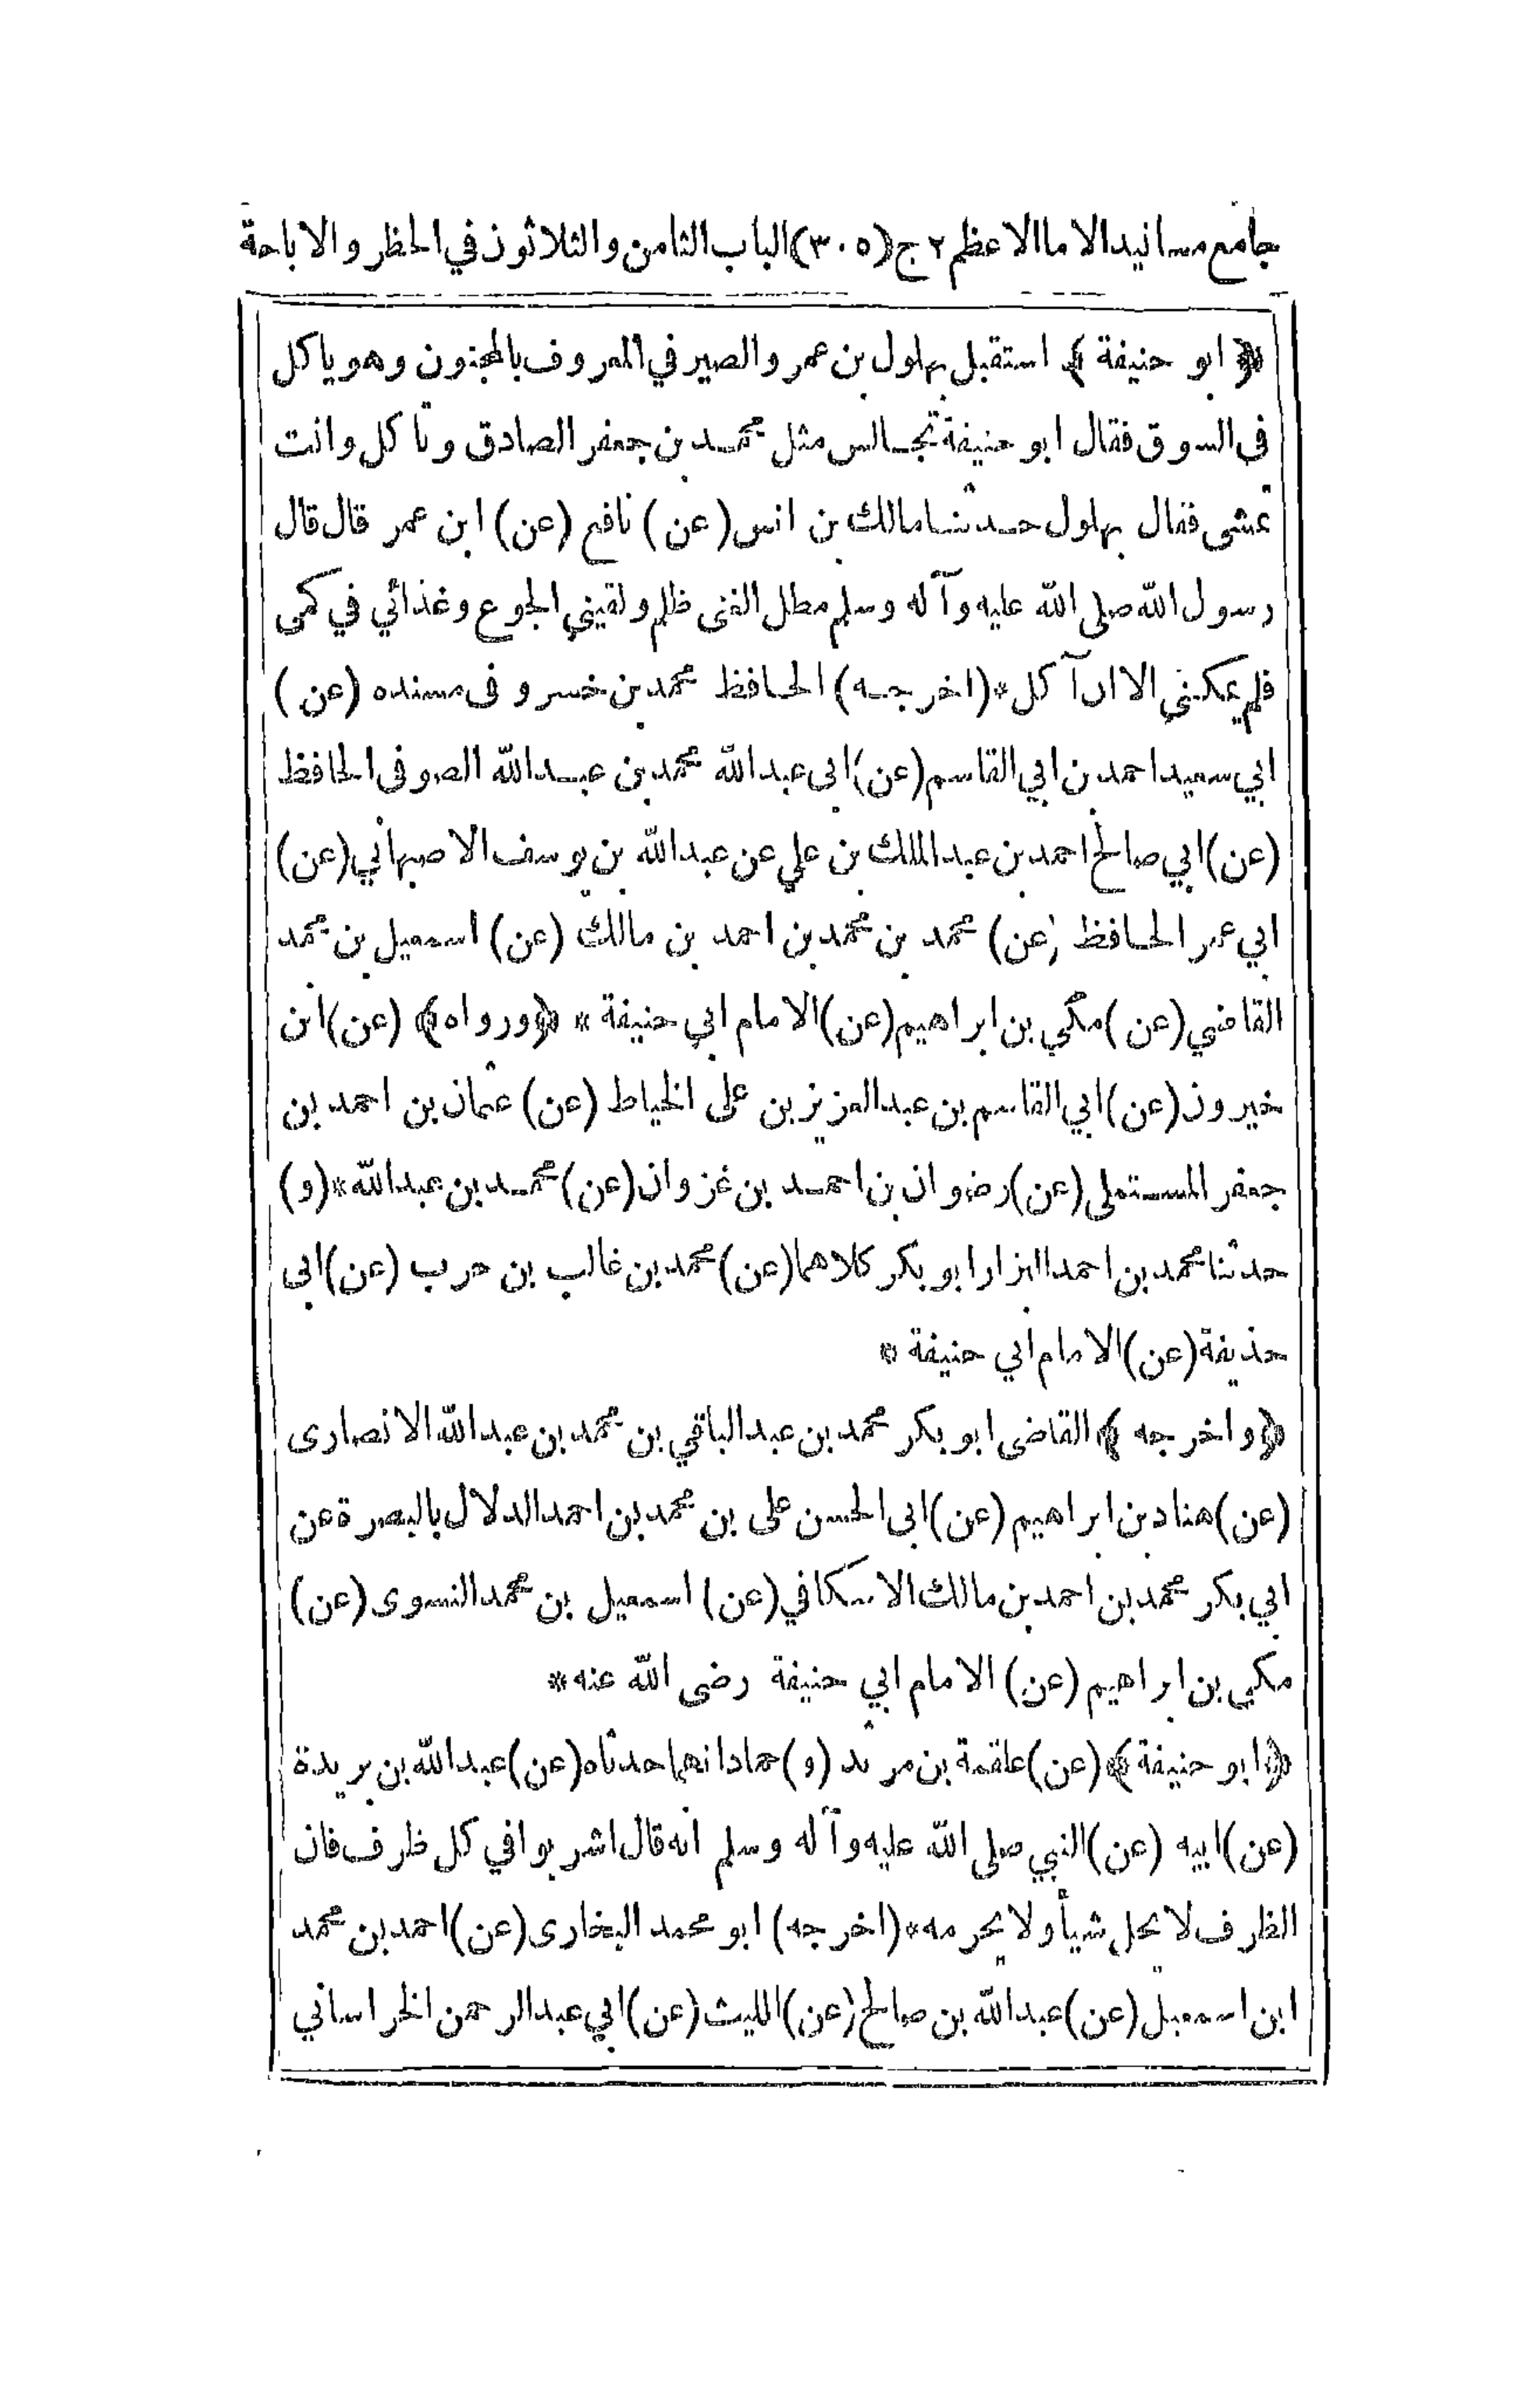 جامع مسانيد الاما الاعظم ٢ ج (٣٠٥) الباب الثامن والثلاثون في الحظر والاباحة
﴿ ابو حنيفة ﴾ استقبل بهلول بن عمر والصير في المعروف بالمجنون وهو ياكل
في السوق فقال ابو حنيفة تجالس مثل محمد بن جعفر الصادق وتاكل وانت
تمشى فقال بهلول حدثنا مالك بن انس (عن) نافع (عن) ابن عمر قال قال
رسول الله صلى الله عليه وآله وسلم مطل الغنى ظلم ولقيني الجوع وغذائي في كمى
فلم يمكنني الا ان آكل * (اخرجه) الحافظ محمد بن خسرو فى مسنده (عن)
ابي سعيد احمد بن ابي القاسم (عن) ابى عبد الله محمد بن عبد الله الصوفى الحافظ
(عن) ابي صالح احمد بن عبد الملك بن علي عن عبد الله بن يوسف الاصبهاني (عن)
ابي عمر الحافظ (عن) محمد بن محمد بن احمد بن مالك (عن) اسمعيل بن محمد
القاضي (عن) مكي بن ابراهيم (عن) الامام ابي حنيفة * ﴿ورواه﴾ (عن) ابن
خيرون (عن) ابي القاسم بن عبد العزيز بن على الخياط (عن) عثمان بن احمد بن
جعفر المستملى (عن) رضوان بن احمد بن غزوان (عن) محمد بن عبد الله * (و)
حدثنا محمد بن احمد البزار ابو بكر كلاهما (عن) محمد بن غالب بن حرب (عن) ابى
حذيفة (عن) الامام ابي حنيفة *
﴿واخرجه ﴾ القاضى ابو بكر محمد بن عبد الباقي بن محمد بن عبد الله الانصارى
(عن) هناد بن ابراهيم (عن) ابى الحسن على بن محمد بن احمد الدلال بالبصرة عن
ابي بكر محمد بن احمد بن مالك الاسكافي (عن) اسمعيل بن محمد النسوى (عن)
مكي بن ابراهيم (عن) الامام ابي حنيفة رضى الله عنه *
﴿ابو حنيفة﴾ (عن) علقمة بن مرثد (و) حمادا نهما حدثاه (عن) عبد الله بن بريدة
(عن) ابيه (عن) النبي صلى الله عليه وآله وسلم انه قال اشربوا في كل ظرف فان
الظرف لا يحل شيأ ولا يحرمه * (اخرجه) ابو محمد البخارى (عن) احمد بن محمد
ابن اسمعيل (عن) عبد الله بن صالح (عن) الليث (عن) ابي عبد الرحمن الخراساني